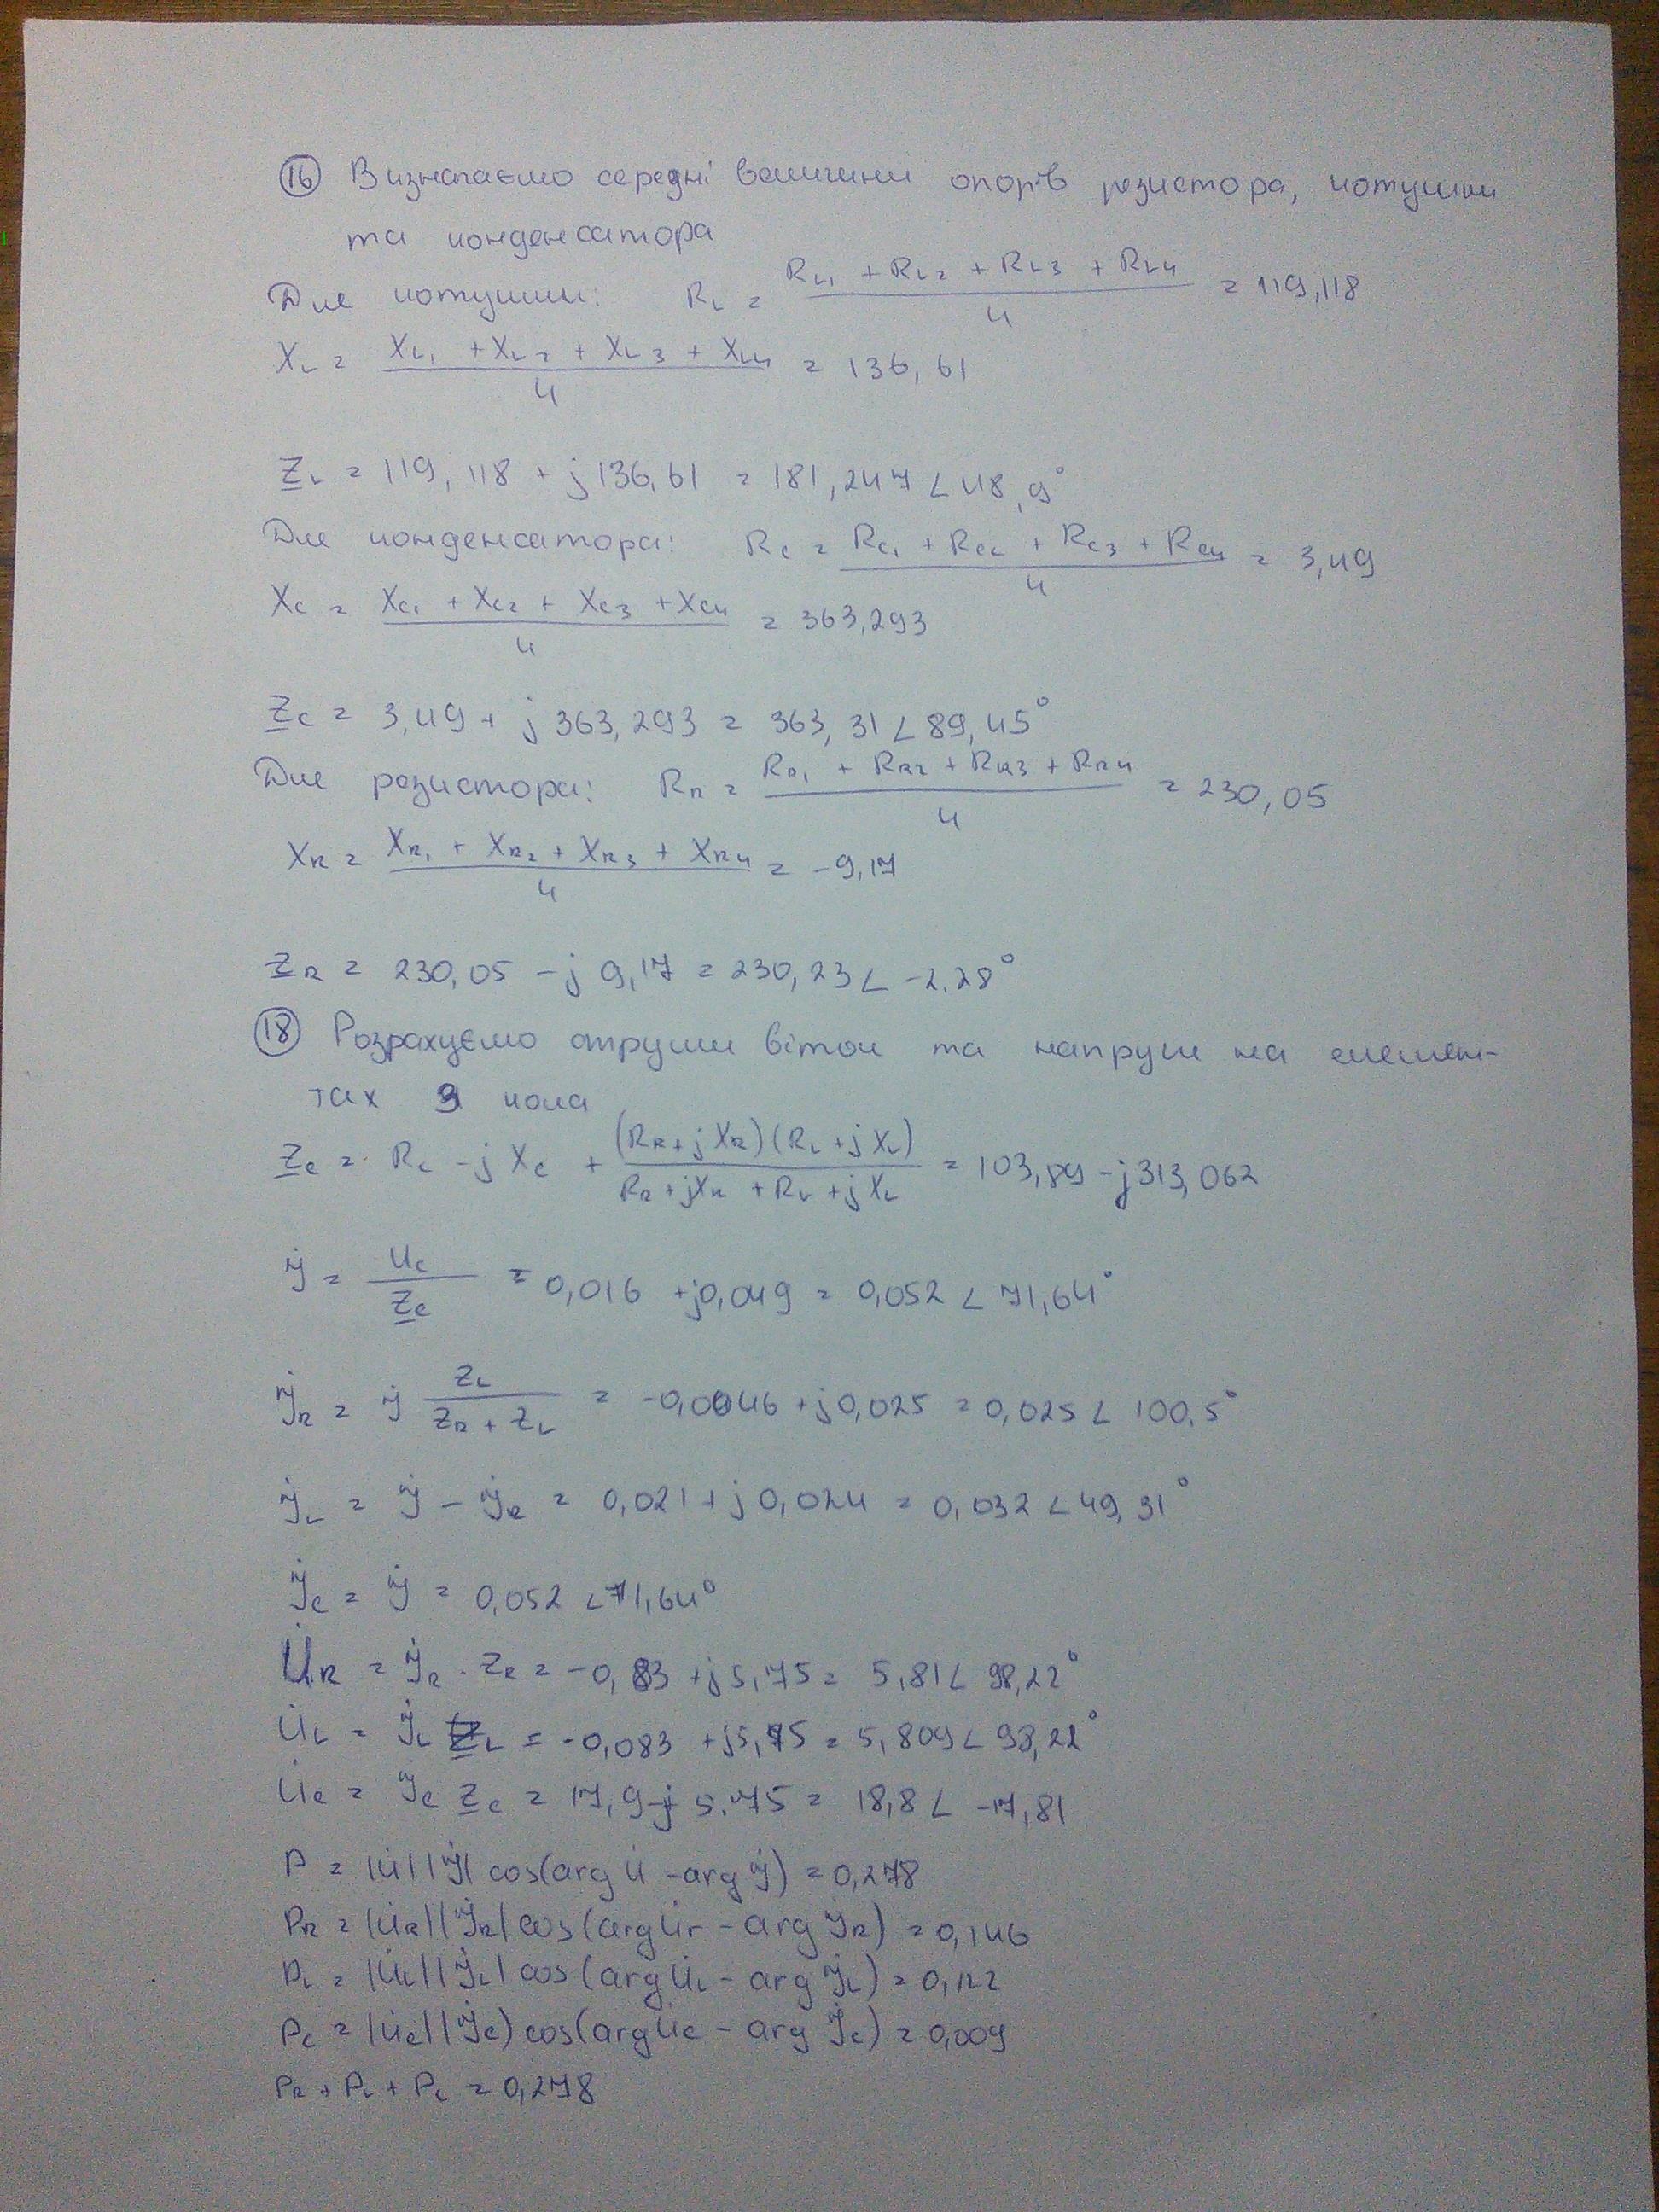 16 Визначаємо середні величини опорів резистора, котушки
та конденсатора
Для котушки: R_L = (R_L1 + R_L2 + R_L3 + R_L4) / 4 = 119,118
X_L = (X_L1 + X_L2 + X_L3 + X_L4) / 4 = 136,61
Z_L = 119,118 + j 136,61 = 181,247 ∠ 48,9°
Для конденсатора: R_C = (R_C1 + R_C2 + R_C3 + R_C4) / 4 = 3,49
X_C = (X_C1 + X_C2 + X_C3 + X_C4) / 4 = 363,293
Z_C = 3,49 + j 363,293 = 363,31 ∠ 89,45°
Для резистора: R_R = (R_R1 + R_R2 + R_R3 + R_R4) / 4 = 230,05
X_R = (X_R1 + X_R2 + X_R3 + X_R4) / 4 = -9,17
Z_R = 230,05 - j 9,17 = 230,23 ∠ -2.28°
18 Розрахуємо струми віток та напруги на елемен-
тах кола
Z_e = R_C - j X_C + (R_R + j X_R)(R_L + j X_L) / (R_R + j X_R + R_L + j X_L) = 103,89 - j 313,062
İ = U_C / Z_e = 0,016 + j0,049 = 0,052 ∠ 71,64°
İ_R = İ Z_L / (Z_R + Z_L) = -0,0046 + j 0,025 = 0,025 ∠ 100,5°
İ_L = İ - İ_R = 0,021 + j 0,024 = 0,032 ∠ 49,31°
İ_C = İ = 0,052 ∠ 71,64°
U̇_R = İ_R · Z_R = -0,83 + j 5,75 = 5,81 ∠ 98,22°
U̇_L = İ_L Z_L = -0,083 + j5,75 = 5,809 ∠ 98,22°
U̇_C = İ_C Z_C = 17,9 - j 5.75 = 18,8 ∠ -17,81
P = |U̇| |İ| cos(arg U̇ - arg İ) = 0,278
P_R = |U̇_R| |İ_R| cos(arg U̇_r - arg İ_R) = 0,146
P_L = |U̇_L| |İ_L| cos(arg U̇_L - arg İ_L) = 0,122
P_C = |U̇_C| |İ_C) cos(arg U̇_C - arg İ_C) = 0,009
P_R + P_L + P_C = 0,278